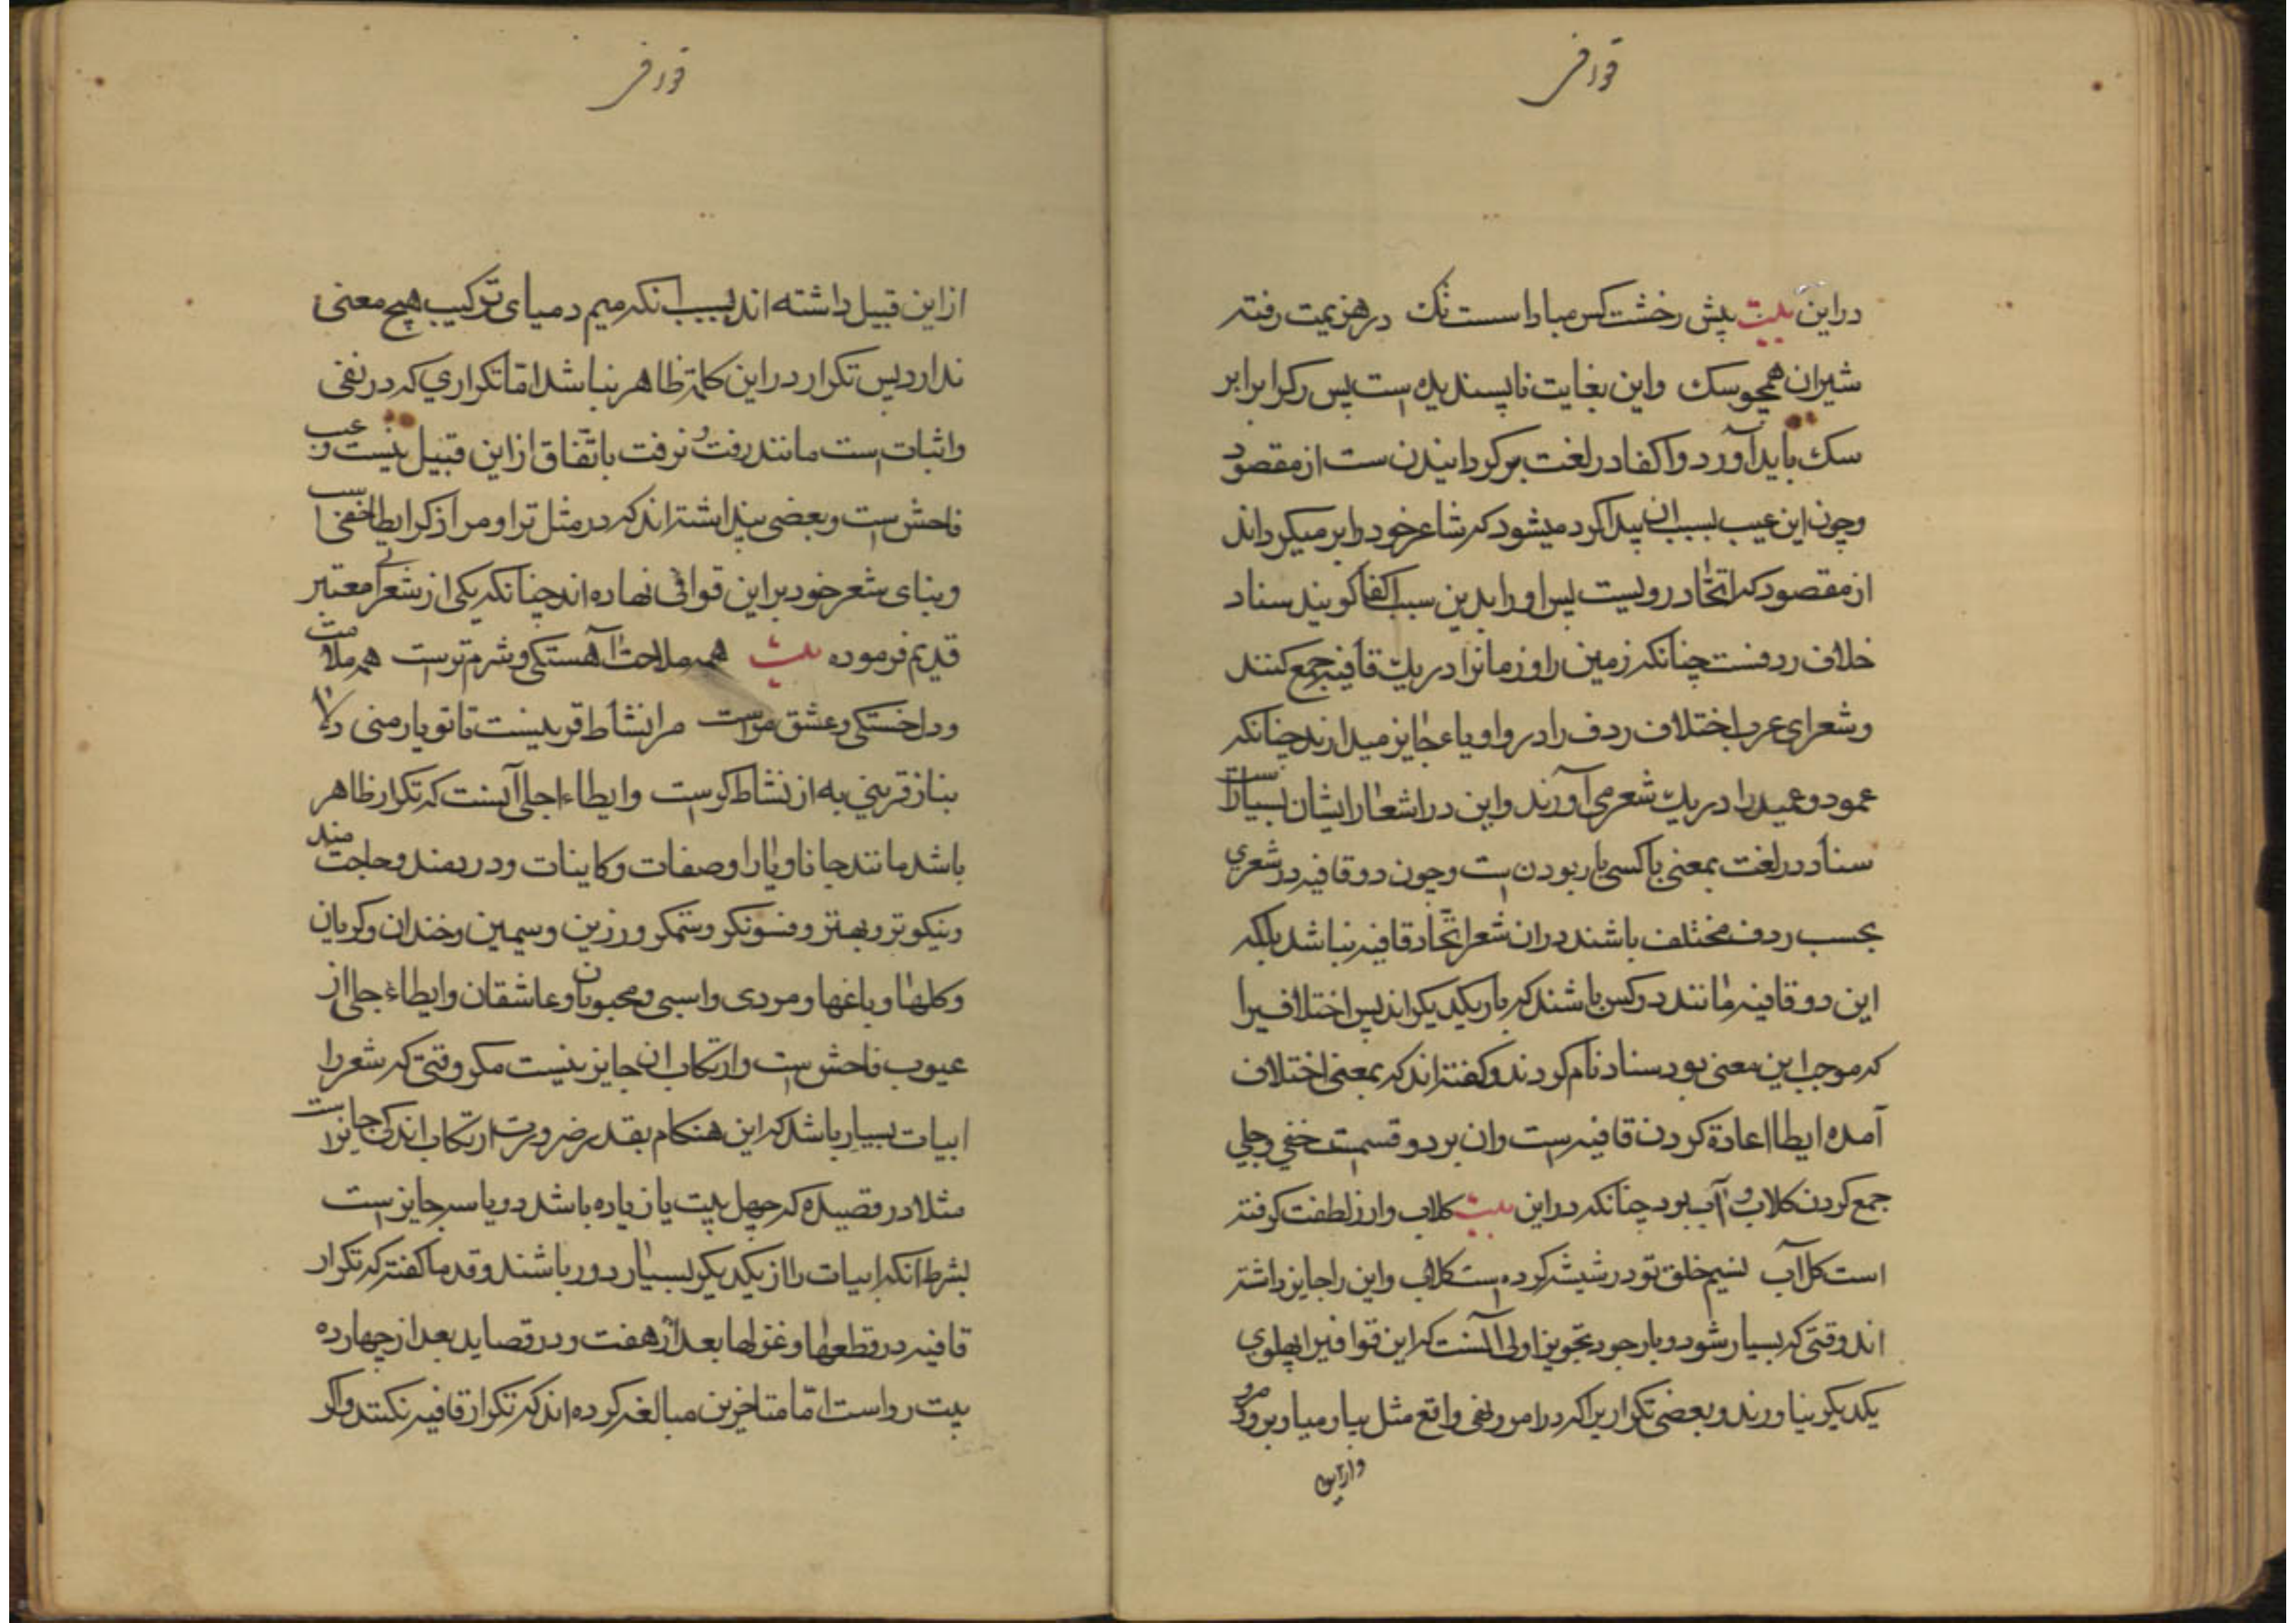 در این بیت پیش رخشت کس مبادا سست تک در هزیمت رفته
شیران همچو سک واین بغایت ناپسندیده است پس رکرا برابر
سک باید آورد واکفا در لغت برکردانیدن ست از مقصود
وچون این عیب بسبب آن پیدا کرد میشود که شاعر خود را بر میکرداند
از مقصود که اتحاد رویست پس او را بدین سبب اکفا کویند سناد
خلاف ردفست چنانکه زمین را وزمانرا در یک قافیه جمع کنند
وشعرای عرب اختلاف ردف را در واو یاء جایز میدارند چنانکه
عمود وعمید را در یک شعر می آورند واین در اشعار ایشان بسیارست
سناد در لغت بمعنی با کسی یار بودن است وچون دو قافیه در شعری
بحسب ردف مختلف باشند در ان شعر اتحاد قافیه نباشد بلکه
این دو قافیه مانند دو کس باشند که یار یکدیکراند پس اختلافیرا
که موجب این معنی بود سناد نام کردند وکفته اند که بمعنی اختلاف
آمده ایطا اعادة کردن قافیه است وان بر دو قسمست خفی وجلی
جمع کردن کلاب و آب بود چنانکه در این بیت کلاب وار ز لطفت کرفته
است کل آب نسیم خلق تو در شیشه کرده است کلاب واین را جایز داشته
اند وقتی که بسیار شود وبا وجود تجویز اولی آنست که این قوافیرا پهلوی
یکدیکر نیاورند وبعضی تکراریرا که در امر ونفی واقع مثل بیا ومیا وبرو ومرو
واز این
از این قبیل داشته اند بسبب انکه میم دمیای ترکیب هیچ معنی
ندارد پس تکرار در این کلمه ظاهر نباشد اما تکراری که در نفی
واثبات است مانند رفت و نرفت باتّفاق از این قبیل نیست وعیب
فاحش است وبعضی پنداشته اند که در مثل ترا ومرا ذکر ایطا خفی است
وبنای شعر خود بر این قوافی نهاده اند چنانکه یکی از شعرای معتبر
قدیم فرموده بیت همه ملاحت آهستکی وشرم تراست همه ملامت
ودلخستکی وعشق مراست مرا نشاط قرینیست تا تو یار منی
بناز قرینی به از نشاط کراست وایطاء اجلی آنست که تکرار ظاهر
باشد مانند جانا ویارا وصفات وکاینات ودردمند وحاجت مند
ونیکوتر وبهتر وفسونکر وستمکر وزرین وسیمین وخندان وکریان
وکلها وباغها ومردی واسبی ومحبوبان وعاشقان وایطاء جلی از
عیوب فاحش است وارتکاب ان جایز نیست مکر وقتی که شعر را
ابیات بسیار باشد که این هنکام بقدر ضرورت ارتکاب اندکی جایز است
مثلا در قصیده که چهل بیت یا زیاده باشد دو یا سه جایز است
بشرط انکه ابیات را از یکدیکر بسیار دور باشند وقدما کفته که تکرار
قافیه در قطعها وغزلها بعد از هفت ودر قصاید بعد از چهارده
بیت رواست امّا متاخرین مبالغه کرده اند که تکرار قافیه نکنند واکر